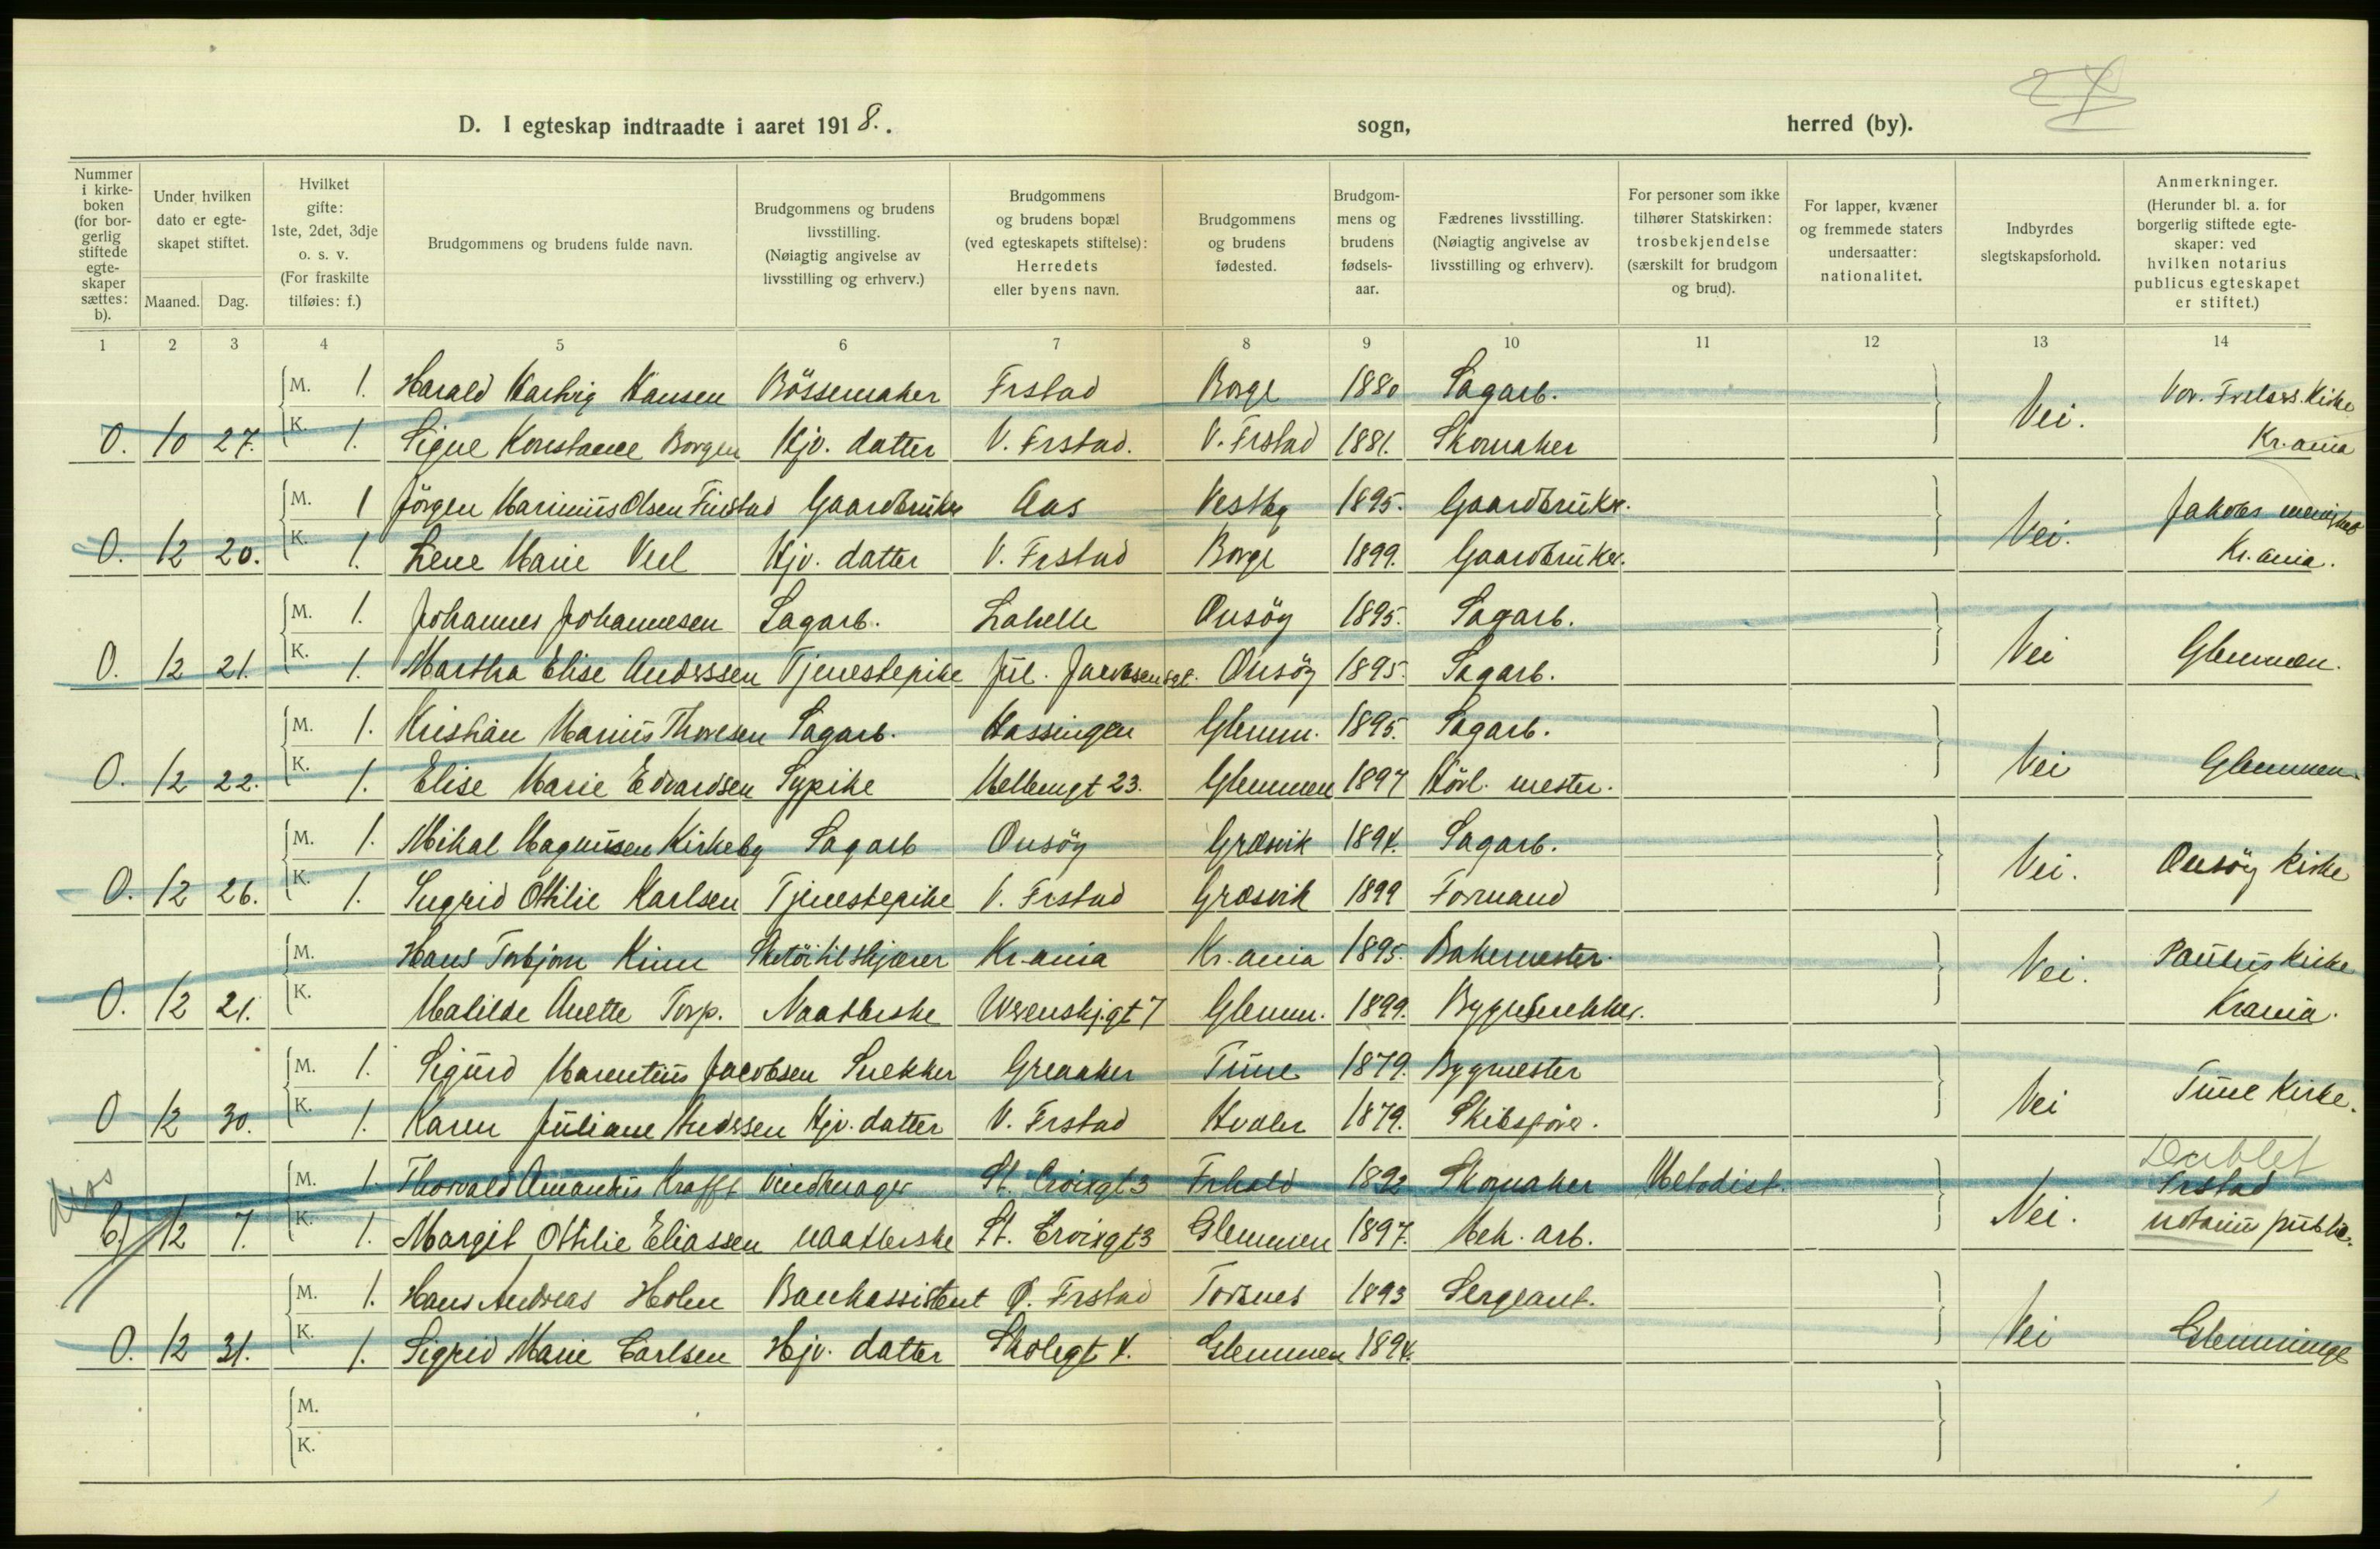 24
D. I egteskap indtraadte i aaret 1918. . sogn, herred (by).
Nummer i kirke-boken (for bor-gerlig stiftede egte-skaper sættes: b).
Under hvilken dato er egte-skapet stiftet.
Maaned. Dag.
Hvilket gifte: 1ste, 2det, 3dje o. s. v. (For fraskilte tilføies: f.)
Brudgommens og brudens fulde navn.
Brudgommens og brudens livsstilling. (Nøiagtig angivelse av livsstilling og erhverv.)
Brudgommens og brudens bopæl (ved egteskapets stiftelse): Herredets eller byens navn.
Brudgommens og brudens fødested.
Brudgom-mens og brudens fødsels-aar.
Fædrenes livsstilling. (Nøiagtig angivelse av livsstilling og erhverv).
For personer som ikke tilhører Statskirken: trosbekjendelse (særskilt for brudgom og brud).
For lapper, kvæner og fremmede staters undersaatter: nationalitet.
Indbyrdes slegtskapsforhold.
Anmerkninger. (Herunder bl. a. for borgerlig stiftede egte-skaper: ved hvilken notarius publicus egteskapet er stiftet.)
1 2 3 4 5 6 7 8 9 10 11 12 13 14
M. 1. Harald Hartvig Hansen Bössemaker Frstad Borge 1880 Sagarb. Vor. Frelsers. Kirke
O. 10 27. K. 1. Signe Konstance Borgen Hjv. datter V. Frstad. V. Frstad 1881. Skomaker Nei. Kr.ania
M. 1 Jörgen Marinius Olsen Finstad Gaardbruker Aas Vestby 1895. Gaardbruker. Jakobs menighet
O. 12 20. K. 1. Lene Marie Veel Hjv. datter V. Frstad Borge 1899. Gaardbruker. Nei. Kr.ania.
M. 1. Johannes Johannesen Sagarb. Lahelle Onsöy 1895. Sagarb.
O. 12 21. K. 1. Martha Elise Anderssen Tjenestepike Jul. Jacobsensgt. Onsöy 1895. Sagarb. Nei Glemmen.
M. 1. Kristian Marius Thoresen Sagarb. Hassingen Glemm. 1895. Sagarb.
O. 12 22. K. 1. Elise Marie Edvardsen Sypike Mellemgt 23. Glemmen 1897 Hövl. mester. Nei Glemmen.
M. 1. Mikal Magnusen Kirkeby Sagarb Onsöy Græsvik 1894. Sagarb.
O. 12 26. K. 1. Sugrid Othilie Karlsen Tjenestepike V. Frstad Græsvik 1899 Formand Nei. Onsöy Kirke
M. Hans Torbjorn Kinn Skotöitilskjærer Kr.ania Kr.ania 1895. Bakermester. Paulus Kirke
O. 12 21. K. Matilde Anette Torp. Naatlerske Werenskj.gt 7 Glemm. 1899. Bygnsnekker. Nei. Krania.
M. 1. Sigurd Marentius Jacobsen Snekker Greaaker Tune 1879. Bygmester
O 12 30. K. 1. Karen Juliane Andersen Hjv. datter V. Frstad Hvaler 1879. Skibsförer. Nei Tune Kirke.
Dublet
M. 1. Thorvald Amandus Krafft Vindmager St. Croixgt 3 Frhald 1892 Skomaker Metodist. Frstad
b) 12 7. K. 1. Margit Othilie Eliassen naatlerske St. Croixgt 3 Glemmen 1897. Mek. arb. Nei. notariu public.
M. 1. Hans Andreas Holm Bankassistent Ø. Frstad Torsnes 1893 Sergeant.
O. 12 31. K. 1. Sigrid Marie Carlsen Hjv. datter Skolegt 4. Glemmen 1894. Nei Glemminge
M.
K.